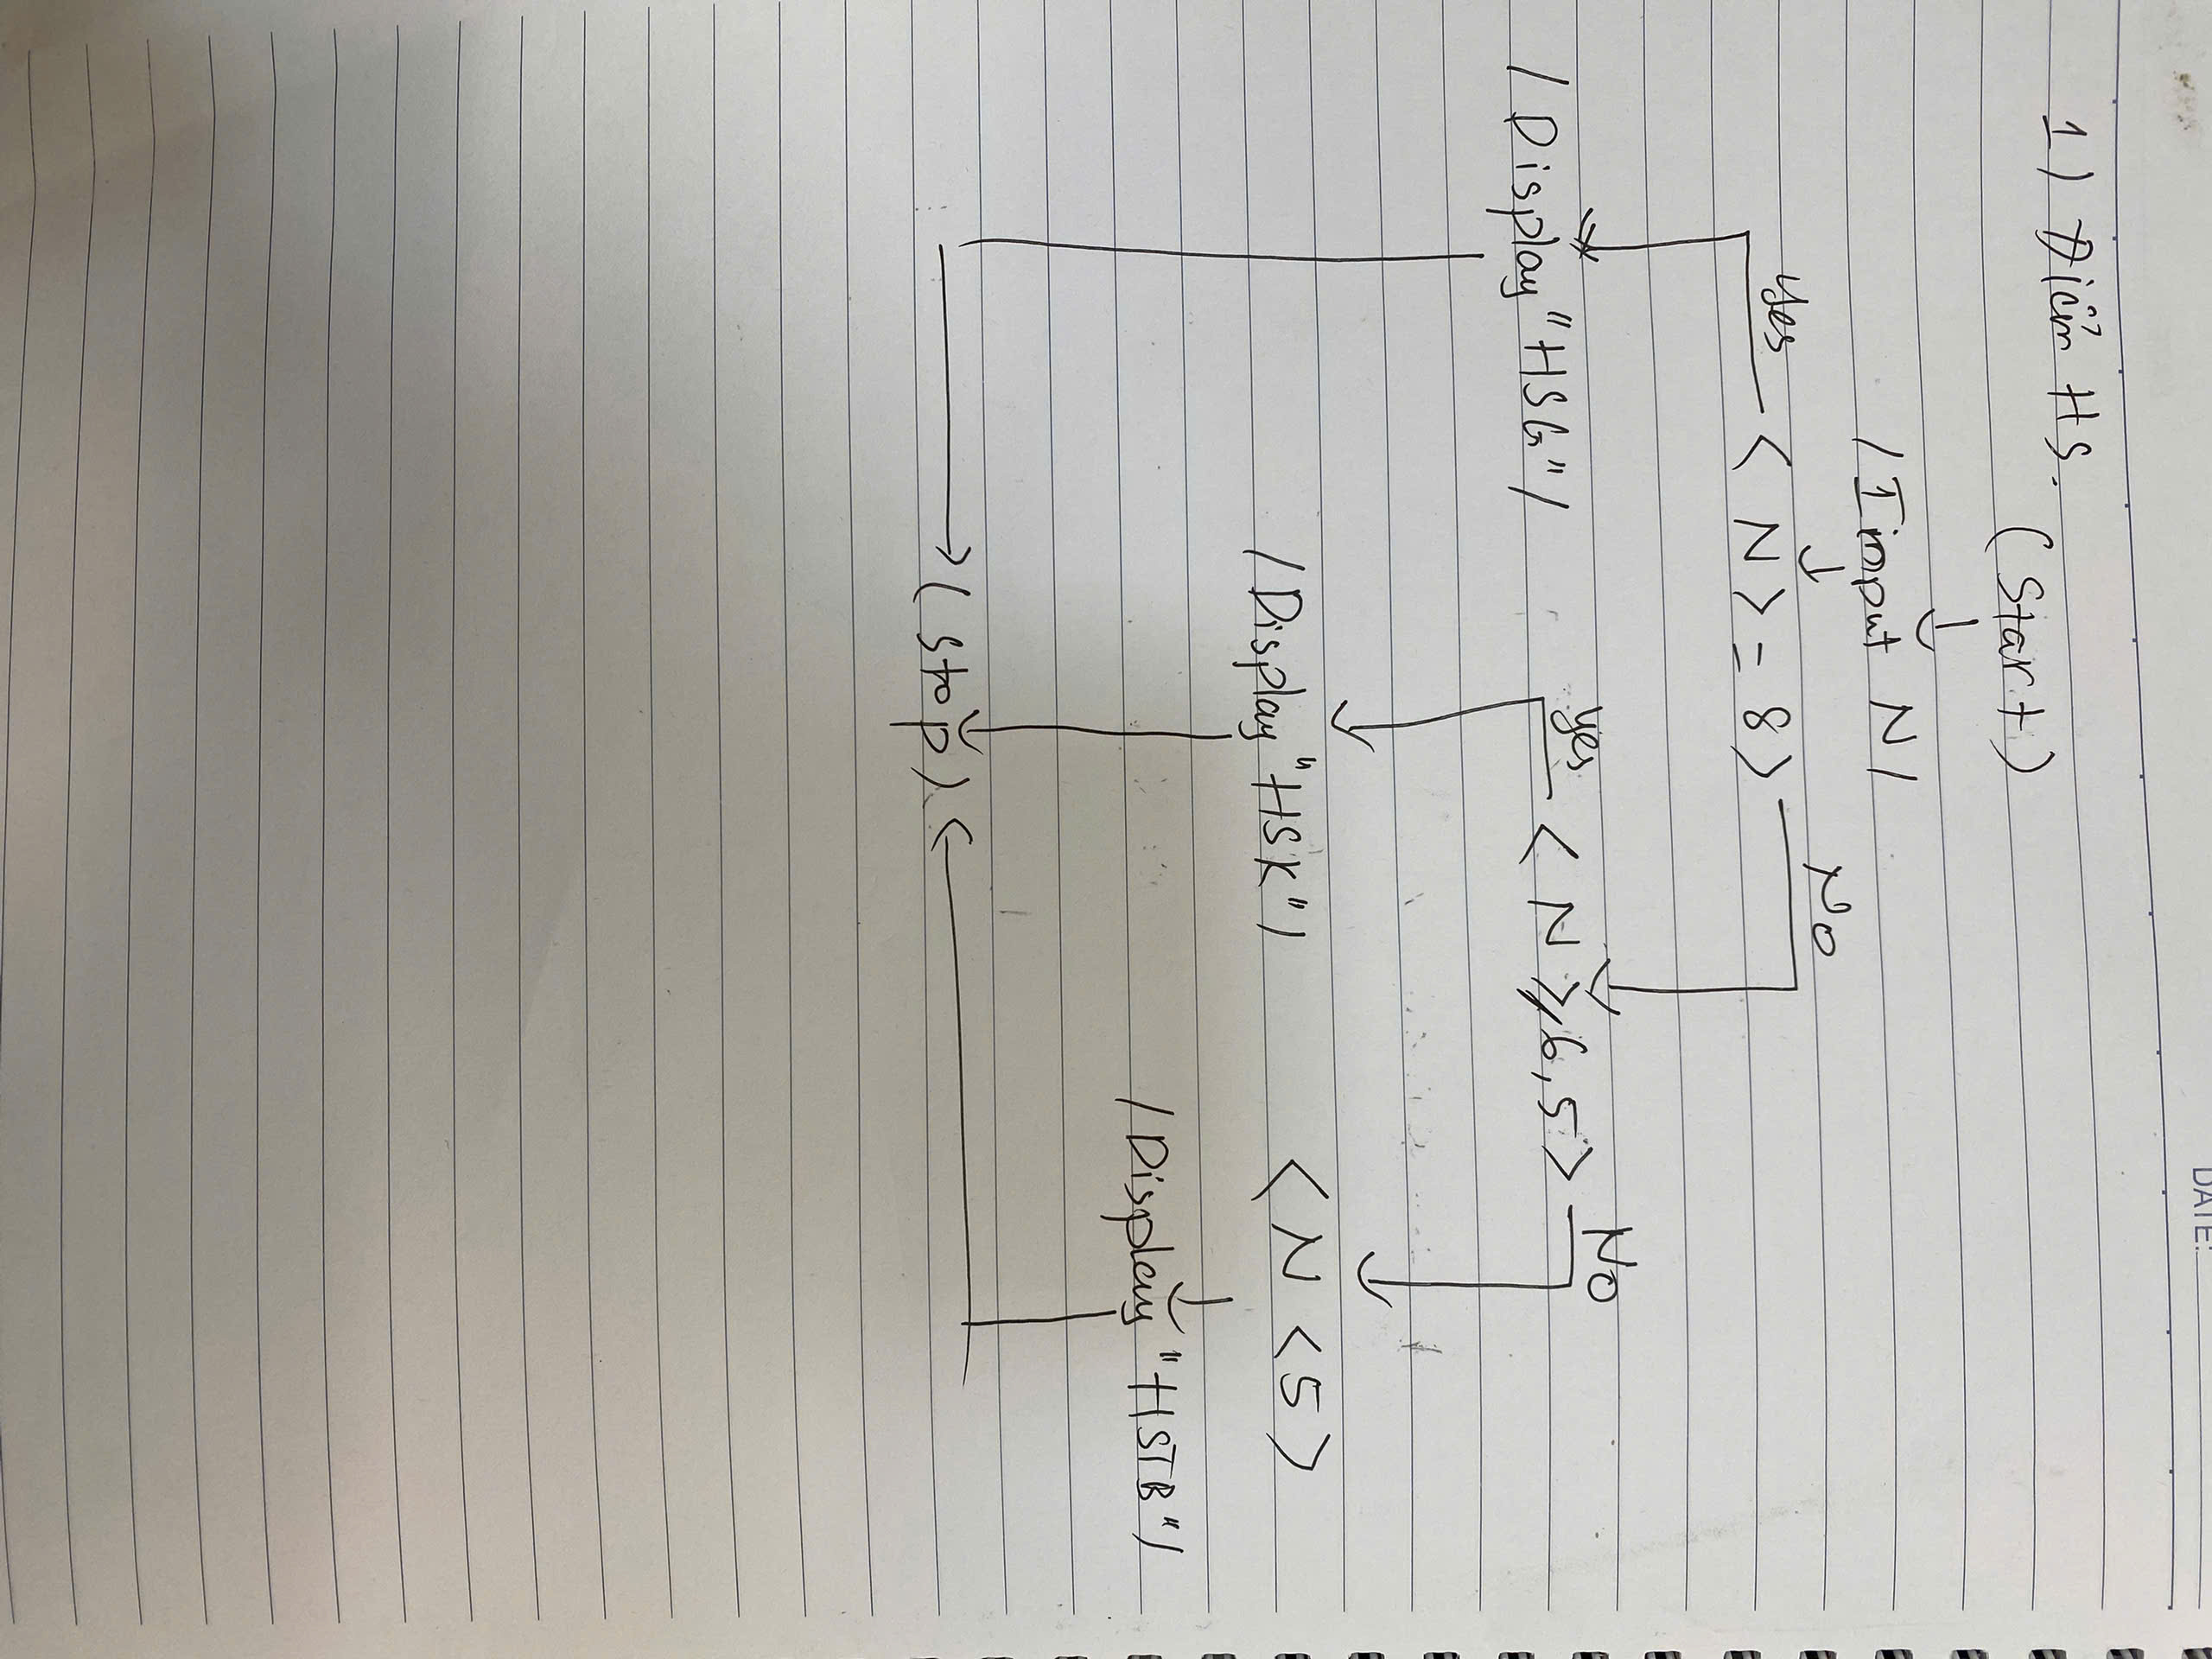 DATE:
1) Điểm HS.
(Start)
/ Input N /
Yes < N > = 8 > No
/ Display "HSG" /
Yes < N ≥ 6,5 > No
/ Display "HSK" /
< N < 5 >
/ Display "HSTB" /
(Stop)